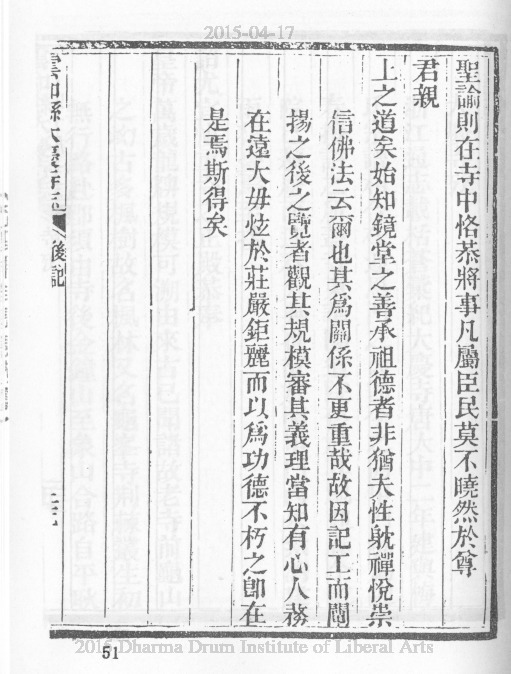 2015-04-17
聖諭則在寺中恪恭將事凡屬臣民莫不曉然於尊
君親
上之道矣始知鏡堂之善承祖德者非猶夫性躭禪悅崇
信佛法云爾也其爲關係不更重哉故因記工而闡
揚之後之覽者觀其規模審其義理當知有心人務
在遠大毋炫於莊嚴鉅麗而以爲功德不朽之卽在
是焉斯得矣
雲和縣大慶寺志
後記
51
2015 Dharma Drum Institute of Liberal Arts